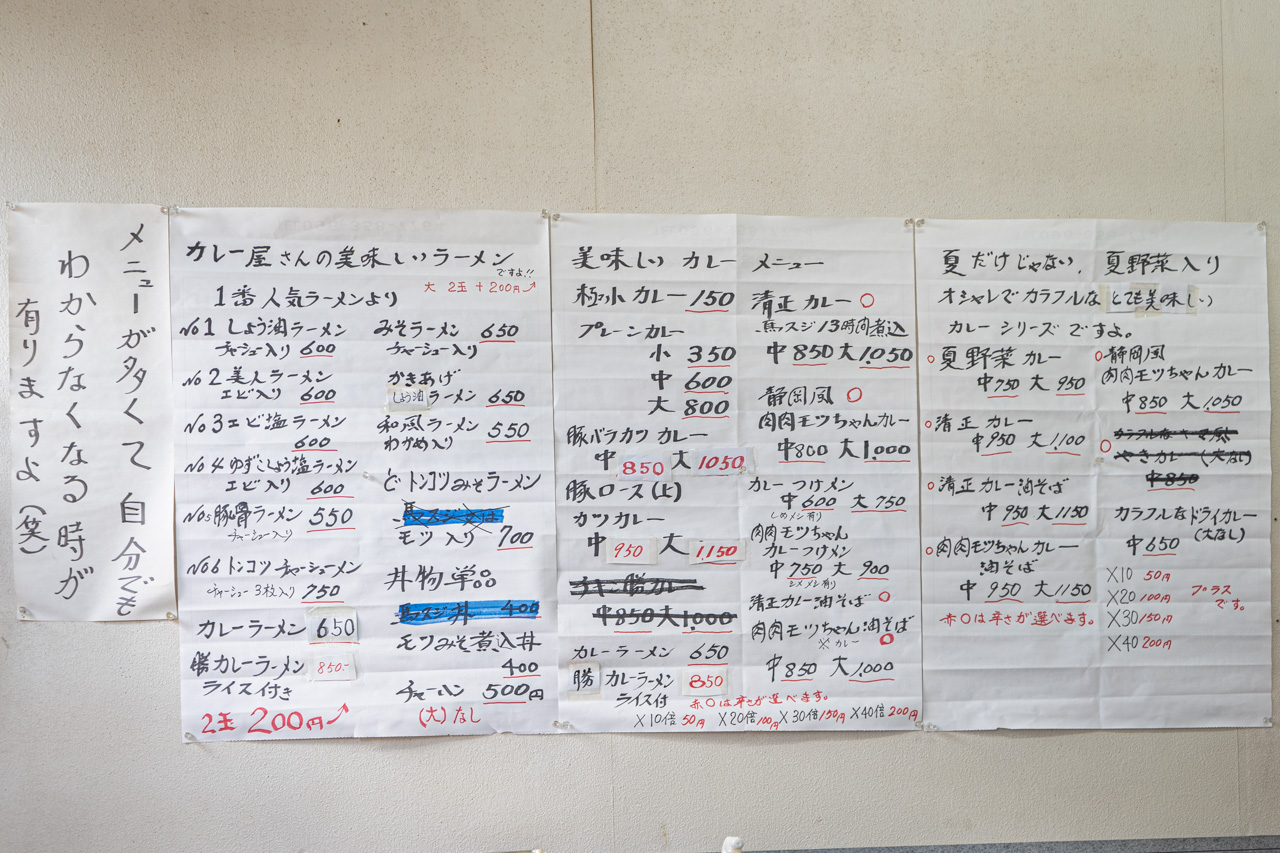 メニューが多くて自分でも
わからなくなる時が
有りますよ(笑)
カレー屋さんの美味しいラーメン
ですよ!!
大 2玉+200円
1番人気ラーメンより
No1 しょう油ラーメン
チャーシュー入り 600
No2 美人ラーメン
エビ入り 600
No3 エビ塩ラーメン
600
No4 ゆずこしょう塩ラーメン
エビ入り 600
No5 豚骨ラーメン 550
チャーシュー入り
No6 トンコツチャーシューメン
チャーシュー3枚入り 750
カレーラーメン 650
勝カレーラーメン 850-
ライス付き
2玉 200円
みそラーメン 650
チャーシュー入り
かきあげ
しょう油ラーメン 650
和風ラーメン 550
わかめ入り
ど・トンコツみそラーメン
馬スジ又は
モツ入り 700
丼物単品
馬スジ丼 400
モツみそ煮込丼
400
チャーハン 500円
(大)なし
美味しい カレー メニュー
極小カレー 150
プレーンカレー
小 350
中 600
大 800
豚バラカツカレー
中 850 大 1050
豚ロース(上)
カツカレー
中 950 大 1,150
チキン勝カレー
中850大1,000
カレーラーメン 650
勝 カレーラーメン 850
ライス付
清正カレー○
馬スジ13時間煮込
中850大1,050
静岡風 ○
肉肉モツちゃんカレー
中800 大1,000
カレーつけメン
中600 大750
しめメシ有り
肉肉モツちゃん
カレーつけメン
中750 大900
シメメシ有り
清正カレー油そば○
肉肉モツちゃん油そば
※カレー ○
中850 大1,000
赤○は辛さが選べます。
X10倍 50円 X20倍 100円 X30倍 150円 X40倍 200円
夏だけじゃない、夏野菜入り
オシャレでカラフルなとても美味しい
カレーシリーズですよ。
○夏野菜カレー
中750 大950
○清正カレー
中950 大1,100
○清正カレー油そば
中950 大1150
○肉肉モツちゃんカレー
油そば
中 950 大1150
赤○は辛さが選べます。
○静岡風
肉肉モツちゃんカレー
中850 大1,050
○
やきカレー(大なし)
中850
カラフルなドライカレー
中650 (大なし)
X10 50円
X20 100円 プラス
X30 150円 です。
X40 200円